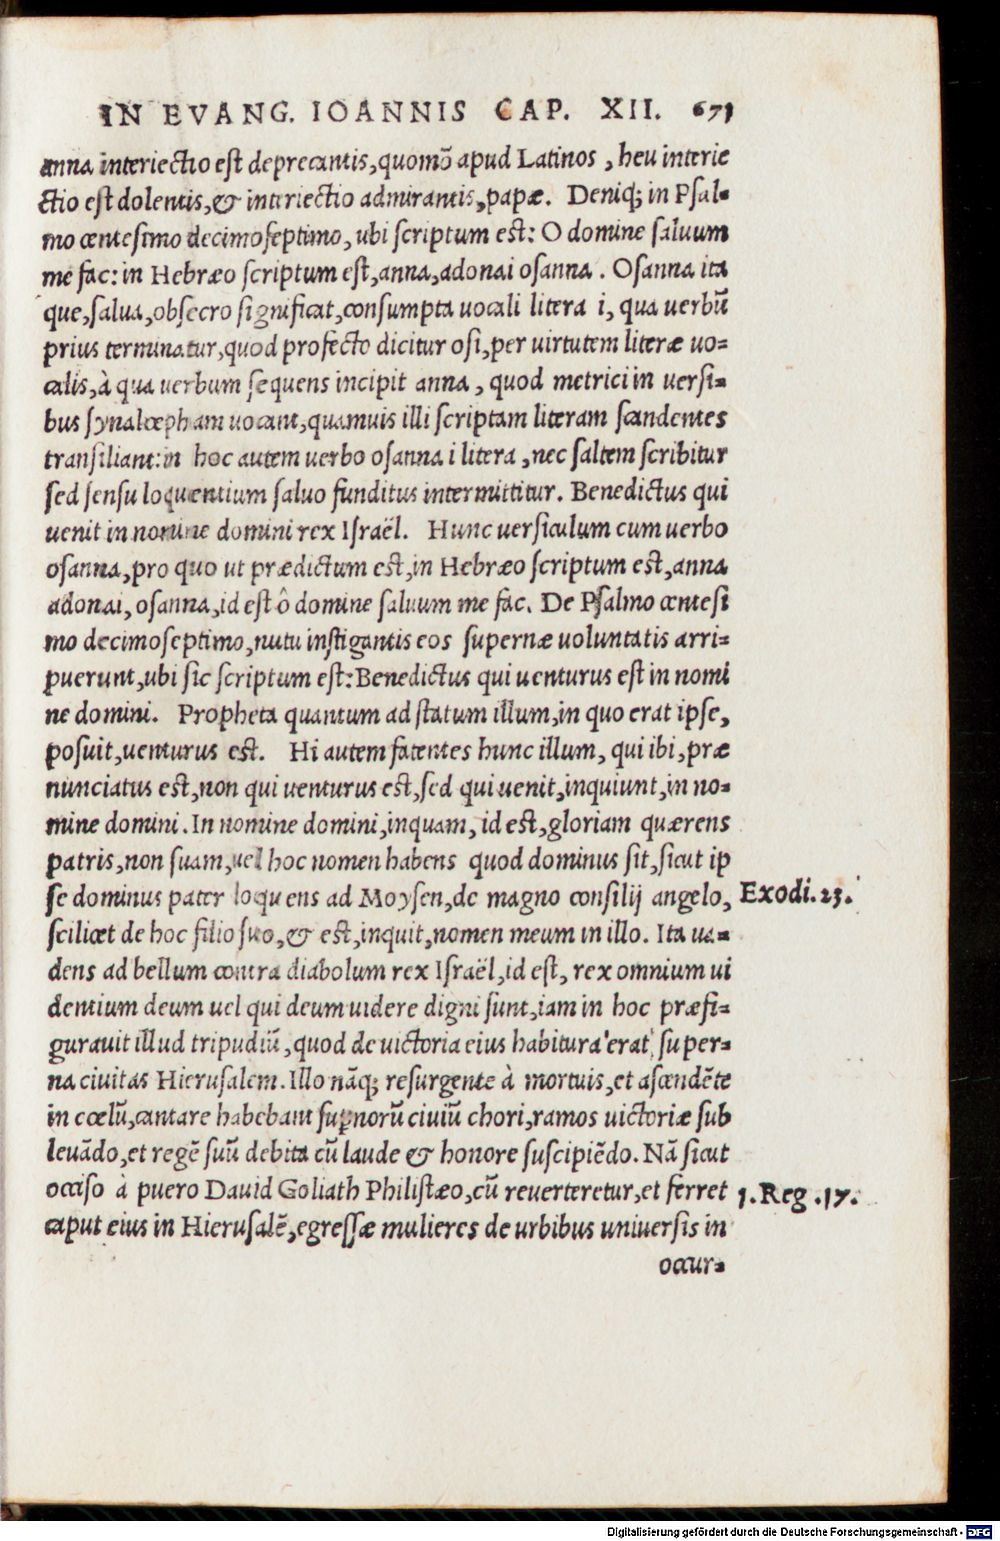 IN EVANG. IOANNIS CAP. XII. 671
anna interiectio est deprecantis, quomō apud Latinos, heu interie
ctio est dolentis, & interiectio admirantis, papæ. Deniq; in Psal-
mo centesimo decimoseptimo, ubi scriptum est: O domine saluum
me fac: in Hebræo scriptum est, anna, adonai osanna. Osanna ita
que, salua, obsecro significat, consumpta uocali litera i, qua uerbū
prius terminatur, quod profecto dicitur osi, per uirtutem literæ uo-
calis, à qua uerbum sequens incipit anna, quod metrici in uersi-
bus synalœpham uocant, quamuis illi scriptam literam scandentes
transiliant: in hoc autem uerbo osanna i litera, nec saltem scribitur
sed sensu loquentium saluo funditus intermittitur. Benedictus qui
uenit in nomine domini rex Israël. Hunc uersiculum cum uerbo
osanna, pro quo ut prædictum est, in Hebræo scriptum est, anna
adonai, osanna, id est ô domine saluum me fac. De Psalmo centesi
mo decimoseptimo, nutu instigantis eos supernæ uoluntatis arri-
puerunt, ubi sic scriptum est: Benedictus qui uenturus est in nomi
ne domini. Propheta quantum ad statum illum, in quo erat ipse,
posuit, uenturus est. Hi autem fatentes hunc illum, qui ibi, præ
nunciatus est, non qui uenturus est, sed qui uenit, inquiunt, in no-
mine domini. In nomine domini, inquam, id est, gloriam quærens
patris, non suam, uel hoc nomen habens quod dominus sit, sicut ip
se dominus pater loquens ad Moysen, de magno consilij angelo, Exodi. 23.
scilicet de hoc filio suo, & est, inquit, nomen meum in illo. Ita ua-
dens ad bellum contra diabolum rex Israël, id est, rex omnium ui
dentium deum uel qui deum uidere digni sunt, iam in hoc præfi-
gurauit illud tripudiū, quod de uictoria eius habitura erat super-
na ciuitas Hierusalem. Illo nāq; resurgente à mortuis, et ascendēte
in cœlū, cantare habebant supnorū ciuiū chori, ramos uictoriæ sub
leuādo, et regē suū debita cū laude & honore suscipiēdo. Nā sicut
occiso à puero Dauid Goliath Philistæo, cū reuerteretur, et ferret 1. Reg. 17.
caput eius in Hierusalē, egressæ mulieres de urbibus uniuersis in
occur-
Digitalisierung gefördert durch die Deutsche Forschungsgemeinschaft - DFG